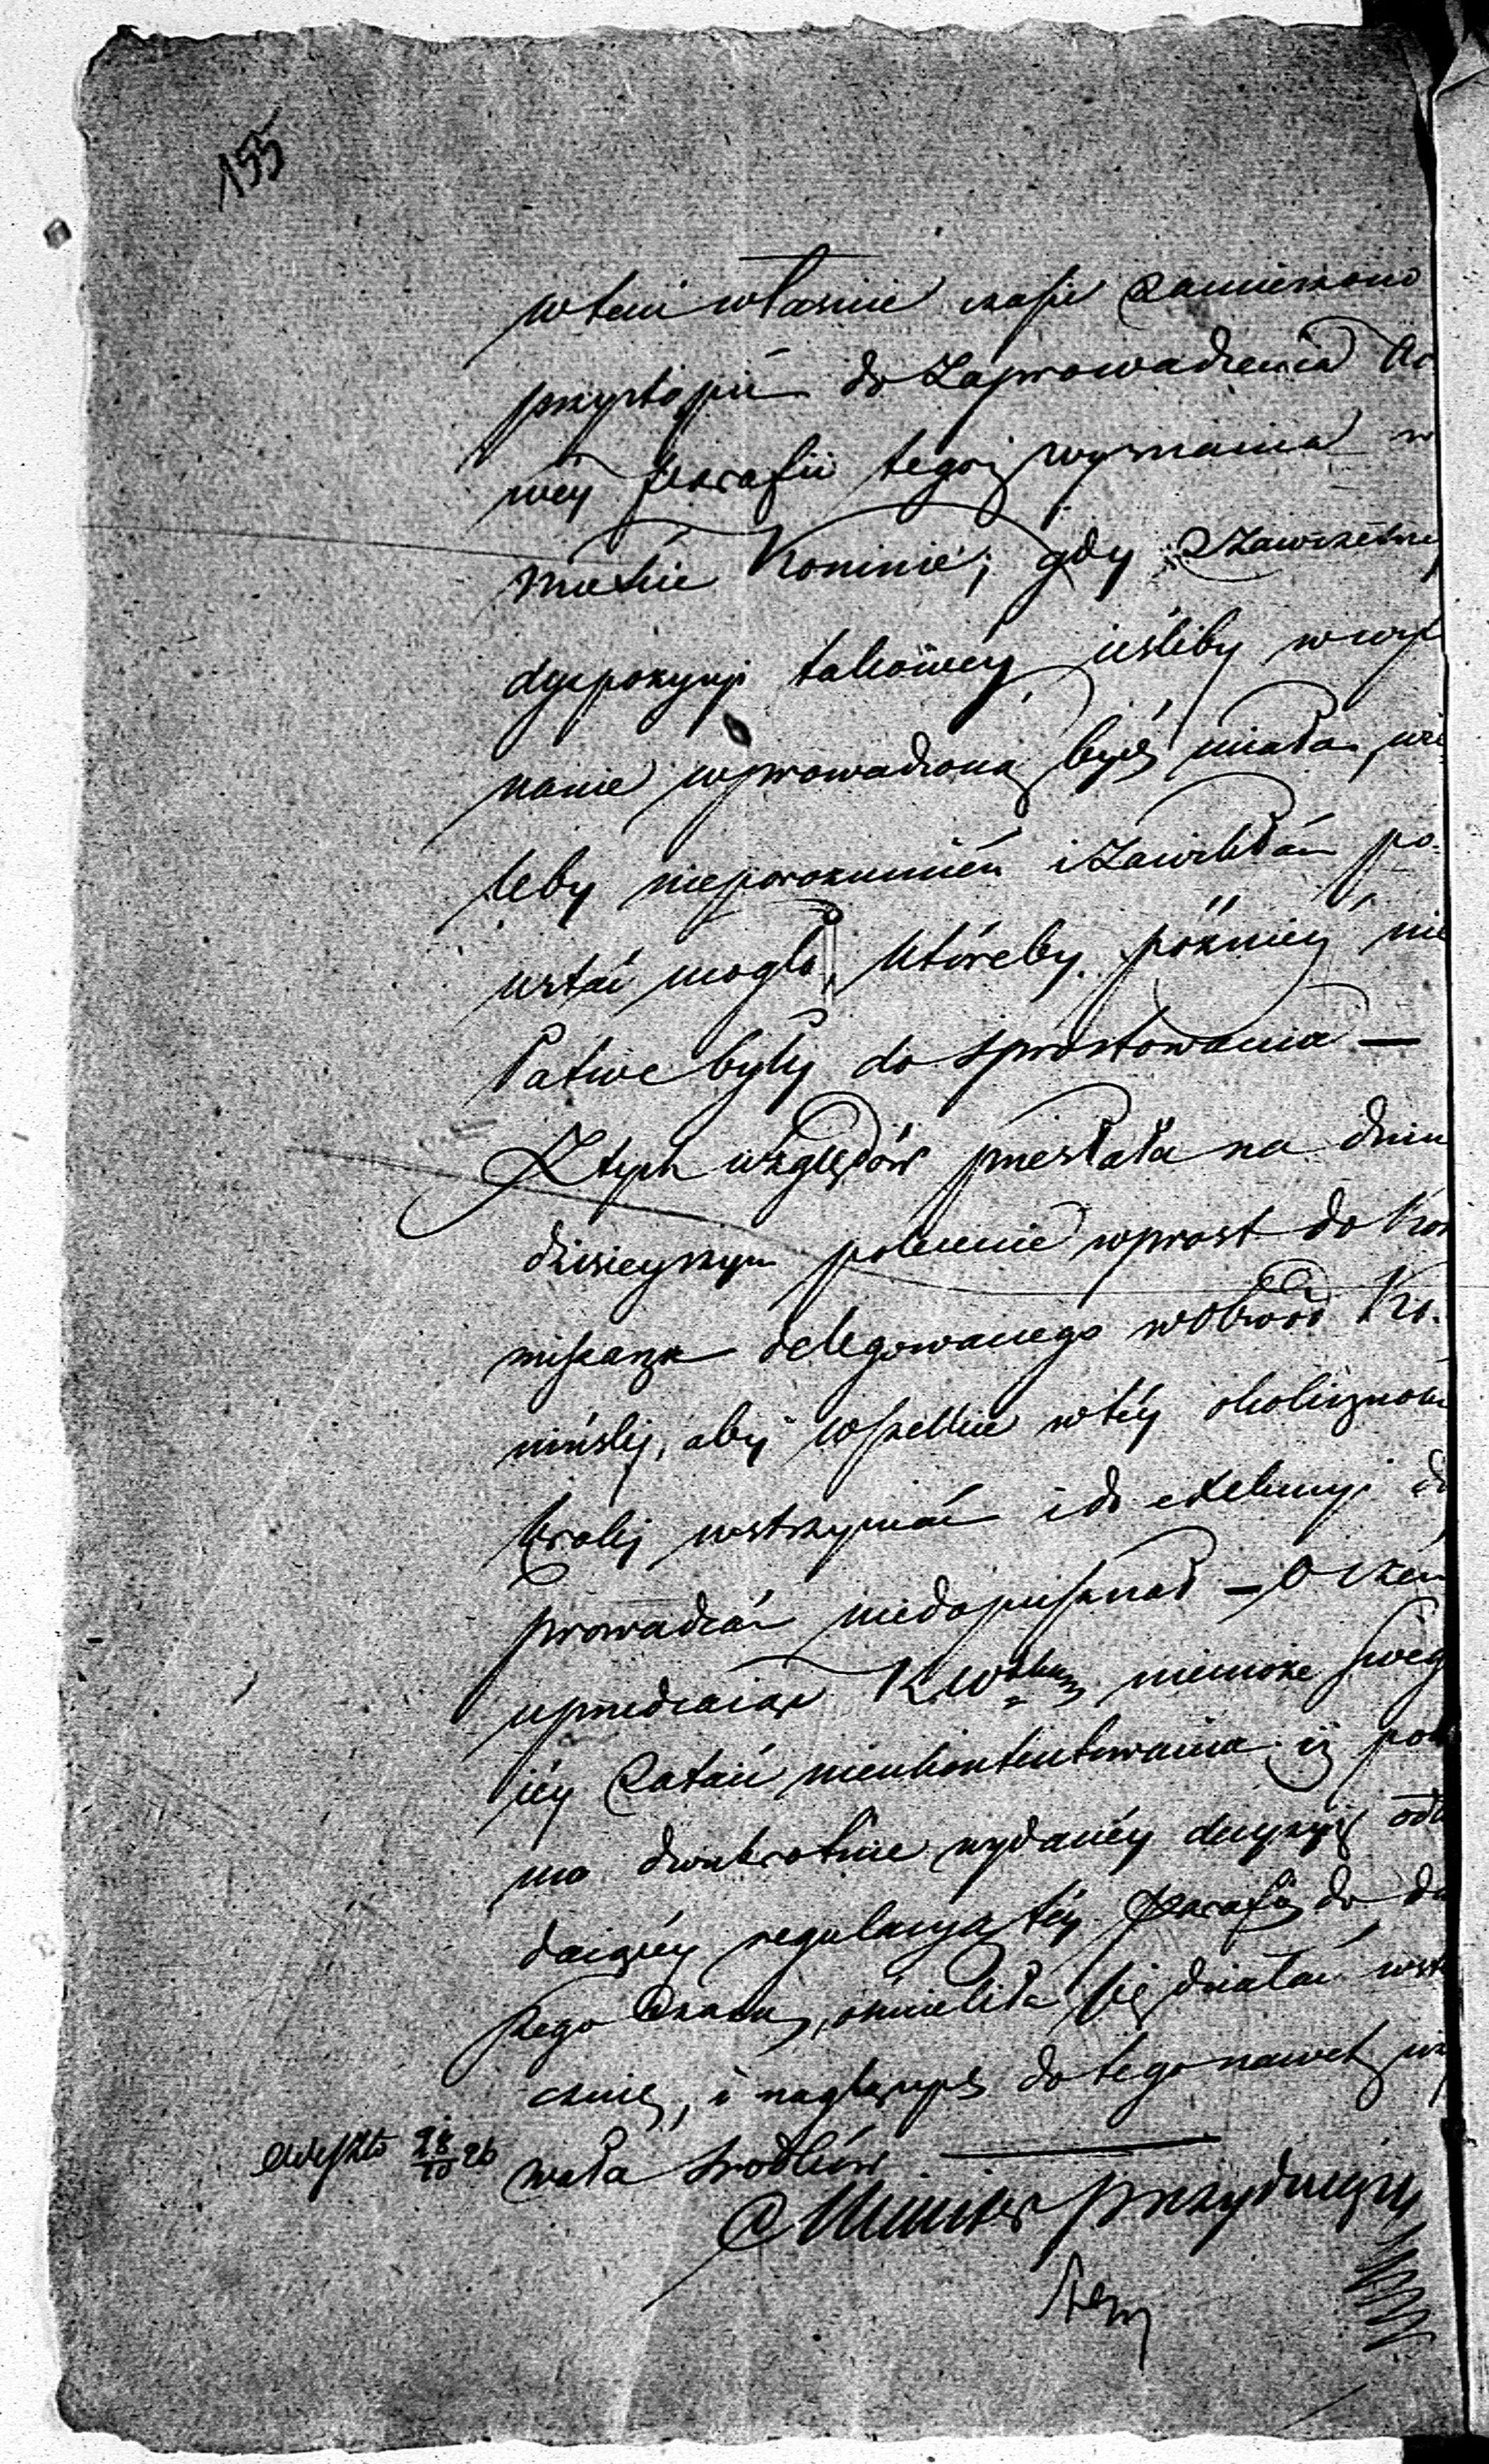 155
w tem własnie czasie zamierzono
przystąpić do zaprowadzenia no
wey Parafii tegoż wyznania w
mieście Koninie; gdy z zawczesney
dyspozycyi takowéy ieśliby w wyk
nanie wprowadzoną bydź miała, wie
leby nieporozumień i zawikłań po-
wstać mogło, któreby późniey nie
łatwe były do sprostowania —
Z tych względów przesłała na dniu
dzisieyszym polecenie wprost do Kom
missarza delegowanego w Obwód Ko-
niński, aby wszelkie w téy okoliczności
kroki wstrzymać i do exekucyi do
prowadzać niedopuszczał — O czém
uprzedzaiąc K. Wdzką niemoże swego
iéy zataić nieukontentowania; iż pomi
mo dwukrotnie wydanéy decyzyi odkła
daiącéy regulacyą téy Parafii do dal
szego czasu, ośmieliła się działać wste
cznie, i naglących do tego nawet uży
wała srodków
Wyszło 28/10 26
Minister Prezyduiący